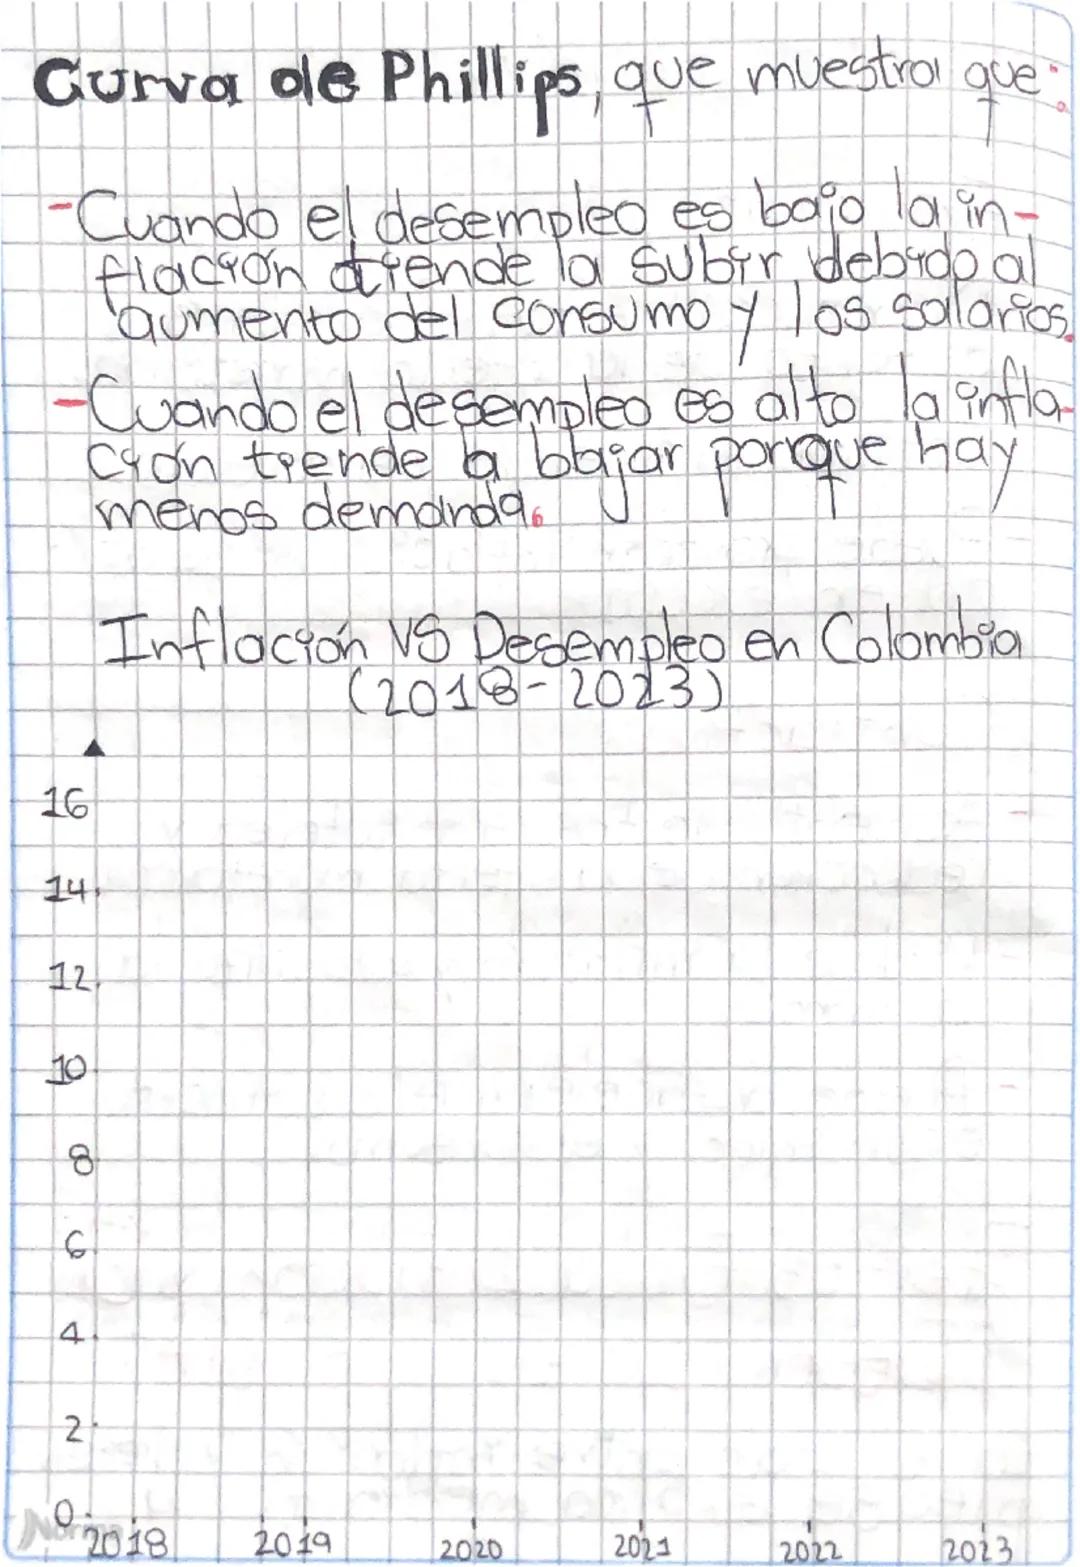 Curva de Phillips, que muestra que:
-Cuando el desempleo es bajo la in-
flación tiende a subir debido al
aumento del consumo y los salarios.
-Cuando el desempleo es alto la infla-
ción tiende a bajar porque hay
menos demanda.
Inflación VS Desempleo en Colombia
(2018-2023)
16
14
12
10
8
6
4
2
0
Norma
2018 2019 2020 2021 2022 2023